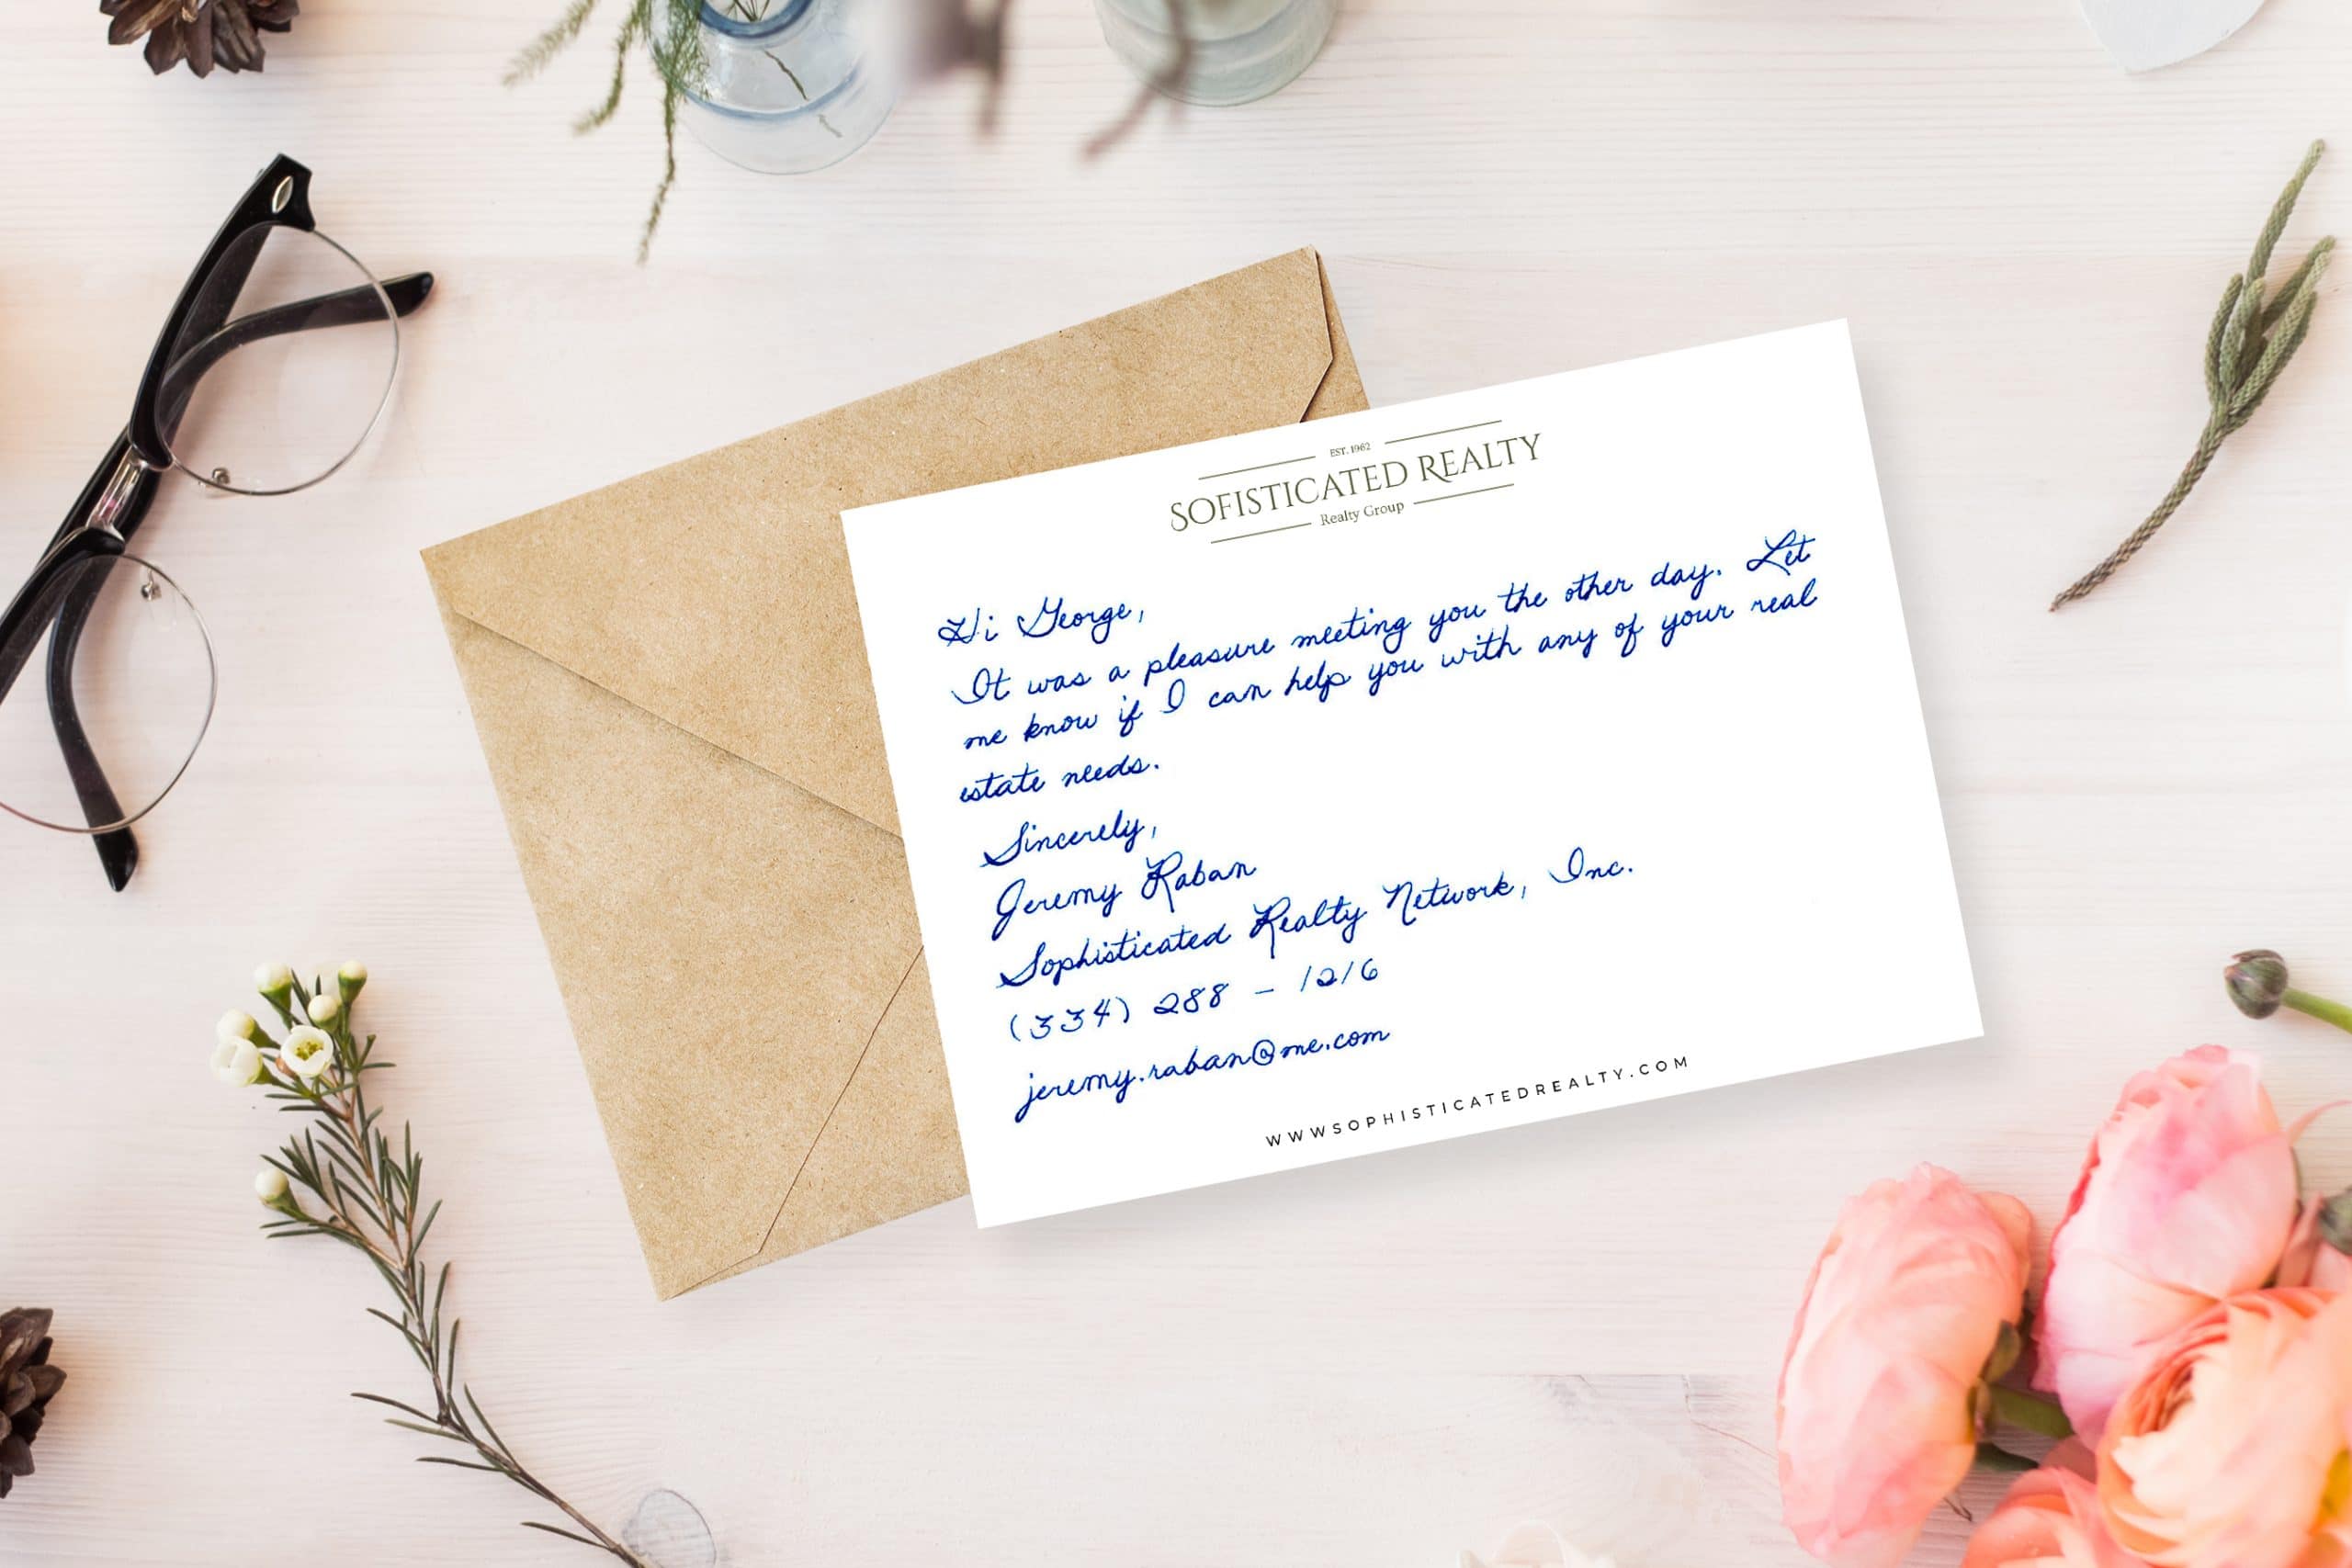 EST. 1962
SOFISTICATED REALTY
Realty Group
Hi George,
It was a pleasure meeting you the other day. Let
me know if I can help you with any of your real
estate needs.
Sincerely,
Jeremy Raban
Sophisticated Realty Network, Inc.
(334) 288 - 1216
jeremy.raban@me.com
WWWSOPHISTICATEDREALTY.COM